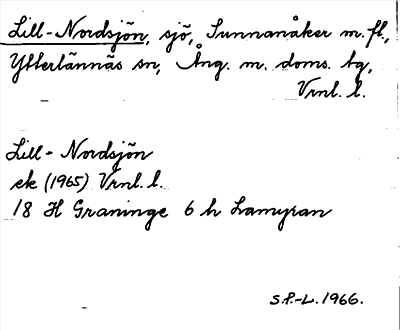 Lill-Nordsjön, sjö, Sunnanåker m.fl.,
Ytterlännäs sn, Ång. m. doms. tg,
Vrnl. l.
Lill-Nordsjön
ek (1965) Vrnl. l.
18 H Graninge 6 h Lamyran
S.P.-L. 1966.